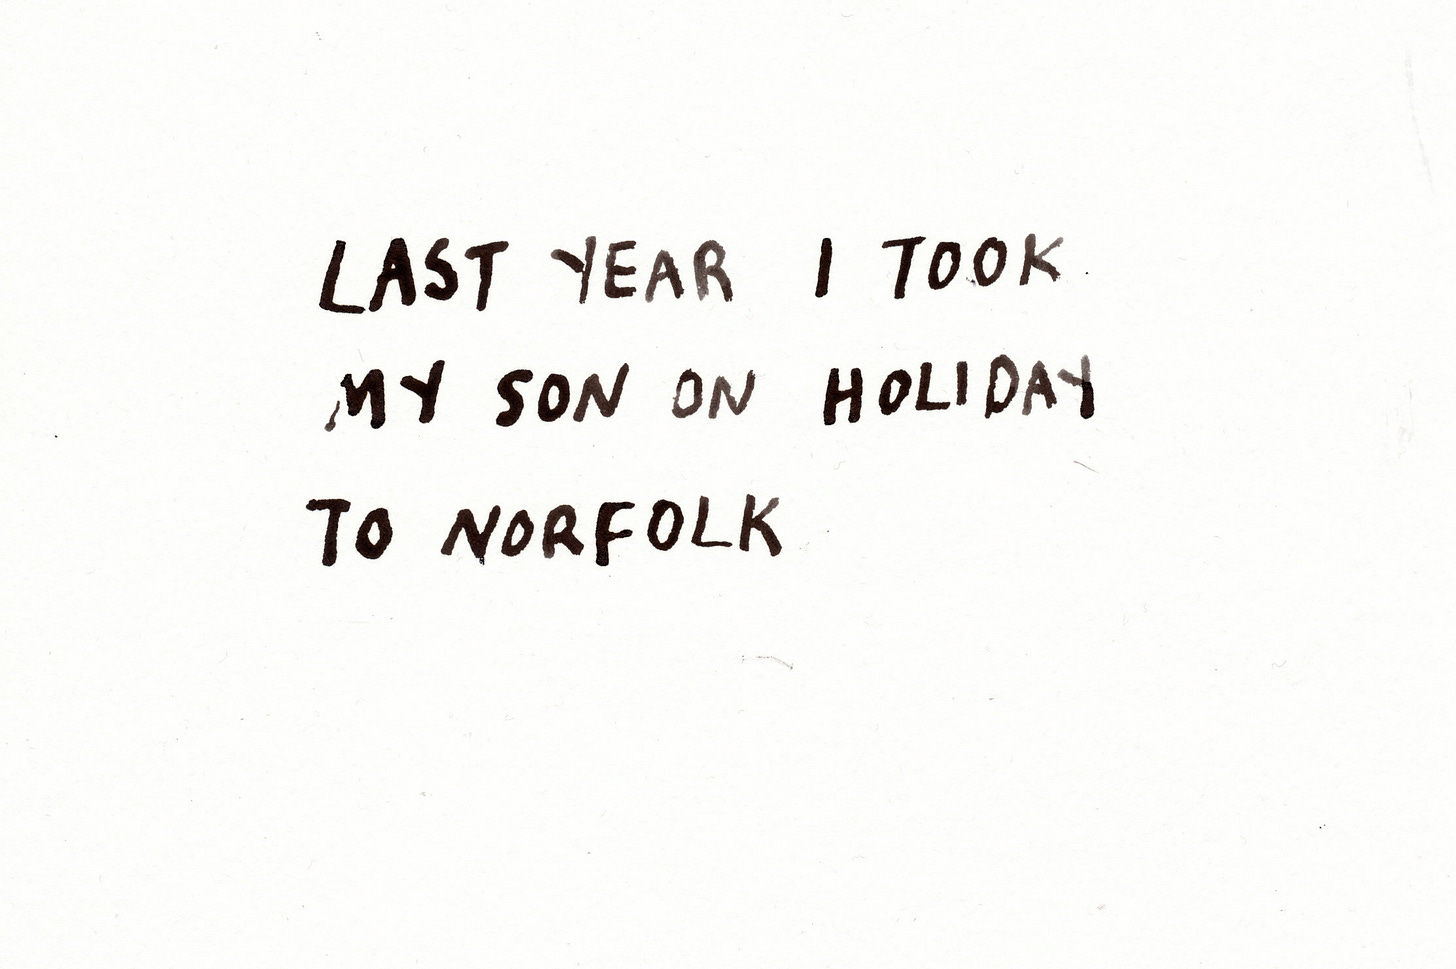 LAST YEAR I TOOK
MY SON ON HOLIDAY
TO NORFOLK